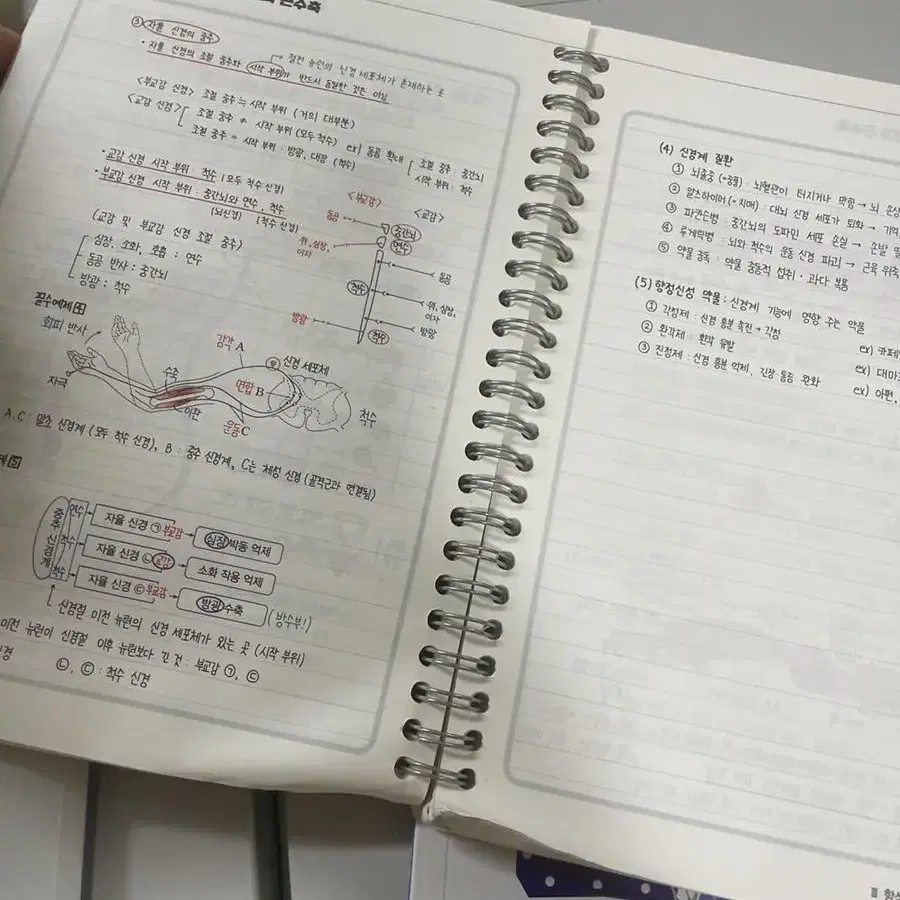 근수축
③ 자율 신경의 중추
→ 절전 뉴런의 신경 세포체가 존재하는 곳
· 자율 신경의 조절 중추와 시작 부위가 반드시 동일한 것은 아님
<부교감 신경> 조절 중추 ≒ 시작 부위 (거의 대부분)
<교감 신경> 조절 중추 ≠ 시작 부위 (모두 척수) ex) 동공 확대 조절 중추 : 중간뇌
조절 중추 = 시작 부위 : 방광, 대장 (척수) 시작 부위 : 척수
· 교감 신경 시작 부위 : 척수 (모두 척수 신경)
· 부교감 신경 시작 부위 : 중간뇌와 연수, 척수
(뇌신경) (척수 신경)
<부교감> <교감>
동공 중간뇌
연수
위, 심장, 이자
동공
척수
위, 심장, 이자
방광 척수 방광
(교감 및 부교감 신경 조절 중추)
심장, 소화, 호흡 : 연수
동공 반사 : 중간뇌
방광 : 척수
필수예제 4
회피 반사
감각 A
신경 세포체
수축
연합 B
자극
이완
운동 C
척수
A, C : 말초 신경계 (모두 척수 신경), B : 중추 신경계, C는 체성 신경 (골격근과 연결됨)
제 5
중추 신경계
연수 자율 신경 ㉠ 부교감 심장 박동 억제
척수 자율 신경 ㉡ 교감 소화 작용 억제
척수 자율 신경 ㉢ 부교감 방광 수축 (방수부!)
신경절 이전 뉴런의 신경 세포체가 있는 곳 (시작 부위)
이전 뉴런이 신경절 이후 뉴런보다 긴 것 : 부교감 ㉠, ㉢
신경 ㉡, ㉢ : 척수 신경
(4) 신경계 질환
① 뇌졸중 (=중풍) : 뇌혈관이 터지거나 막힘 → 뇌 손상
② 알츠하이머 (=치매) : 대뇌 신경 세포가 퇴화 → 기억
③ 파킨슨병 : 중간뇌의 도파민 세포 손실 → 손발 떨
④ 루게릭병 : 뇌와 척수의 운동 신경 파괴 → 근육 위축
⑤ 약물 중독 : 약물 충동적 섭취 · 과다 복용
(5) 향정신성 약물 : 신경계 기능에 영향 주는 약물
① 각성제 : 신경 흥분 촉진 → 각성 ex) 카페
② 환각제 : 환각 유발 ex) 대마
③ 진정제 : 신경 흥분 억제, 긴장 통증 완화 ex) 아편,
Ⅲ 항상